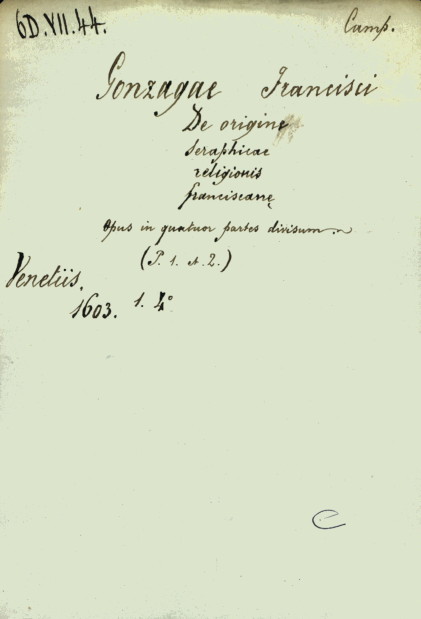 6D.VII.44.
Camp.
Gonzagae Francisci
De origine
seraphicae
religionis
franciscanę
Opus in quatuor partes divisum.
(P. 1. et 2.)
Venetiis.
1603. 1. 4°
e